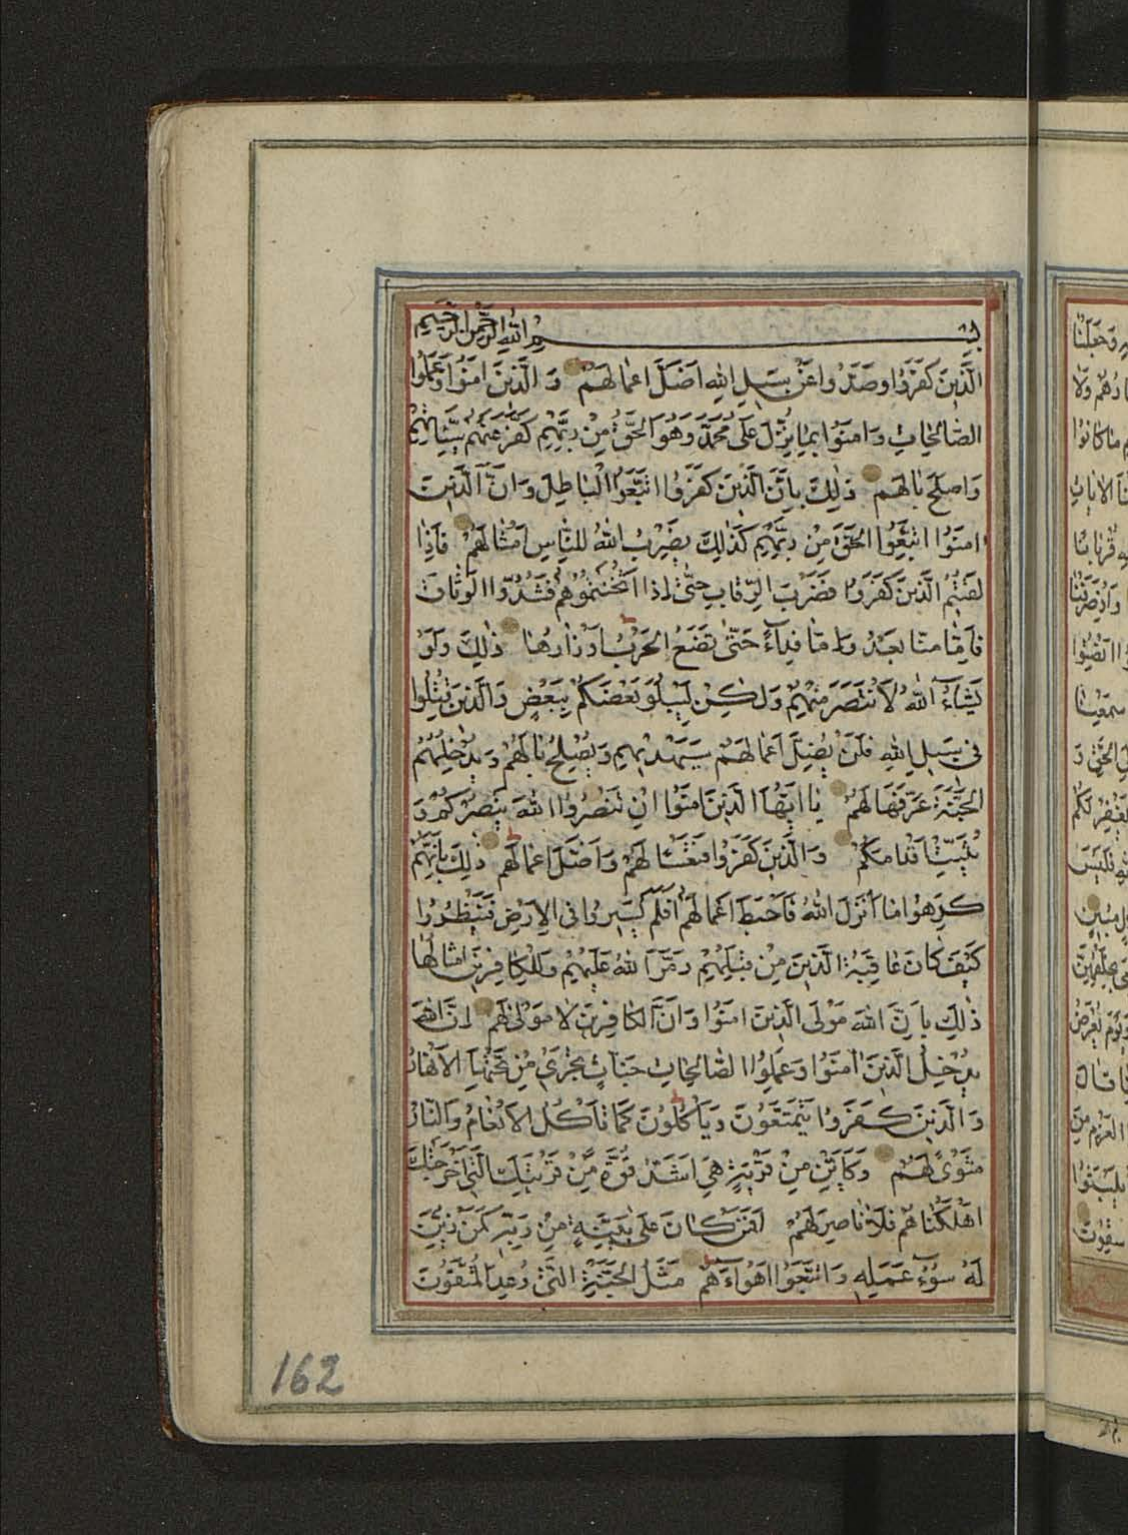 بسم الله الرحمن الرحيم
الَّذِينَ كَفَرُوا وَصَدُّوا عَنْ سَبِيلِ اللهِ اَضَلَّ اَعْمَالَهُمْ وَ الَّذِينَ اٰمَنُوا وَعَمِلُوا
الصَّالِحَاتِ وَ اٰمَنُوا بِمَا نُزِّلَ عَلَى مُحَمَّدٍ وَهُوَ الْحَقُّ مِنْ رَبِّهِمْ كَفَّرَ عَنْهُمْ سَيِّئَاتِهِمْ
وَ اَصْلَحَ بَالَهُمْ ذٰلِكَ بِاَنَّ الَّذِينَ كَفَرُوا اتَّبَعُوا الْبَاطِلَ وَ اَنَّ الَّذِينَ
اٰمَنُوا اتَّبَعُوا الْحَقَّ مِنْ رَبِّهِمْ كَذٰلِكَ يَضْرِبُ اللهُ لِلنَّاسِ اَمْثَالَهُمْ فَاِذَا
لَقِيتُمُ الَّذِينَ كَفَرُوا فَضَرْبَ الرِّقَابِ حَتّٰى اِذَا اَثْخَنْتُمُوهُمْ فَشُدُّوا الْوَثَاقَ
فَاِمَّا مَنًّا بَعْدُ وَ اِمَّا فِدَاءً حَتّٰى تَضَعَ الْحَرْبُ اَوْزَارَهَا ذٰلِكَ وَ لَوْ
يَشَاءُ اللهُ لَانْتَصَرَ مِنْهُمْ وَلٰكِنْ لِيَبْلُوَ بَعْضَكُمْ بِبَعْضٍ وَ الَّذِينَ قُتِلُوا
فِى سَبِيلِ اللهِ فَلَنْ يُضِلَّ اَعْمَالَهُمْ سَيَهْدِيهِمْ وَ يُصْلِحُ بَالَهُمْ وَ يُدْخِلُهُمُ
الْجَنَّةَ عَرَّفَهَا لَهُمْ يَا اَيُّهَا الَّذِينَ اٰمَنُوا اِنْ تَنْصُرُوا اللهَ يَنْصُرْكُمْ وَ
يُثَبِّتْ اَقْدَامَكُمْ وَ الَّذِينَ كَفَرُوا فَتَعْسًا لَهُمْ وَ اَضَلَّ اَعْمَالَهُمْ ذٰلِكَ بِاَنَّهُمْ
كَرِهُوا مَا اَنْزَلَ اللهُ فَاَحْبَطَ اَعْمَالَهُمْ اَفَلَمْ يَسِيرُوا فِى الْاَرْضِ فَيَنْظُرُوا
كَيْفَ كَانَ عَاقِبَةُ الَّذِينَ مِنْ قَبْلِهِمْ دَمَّرَ اللهُ عَلَيْهِمْ وَ لِلْكَافِرِينَ اَمْثَالُهَا
ذٰلِكَ بِاَنَّ اللهَ مَوْلَى الَّذِينَ اٰمَنُوا وَ اَنَّ الْكَافِرِينَ لَا مَوْلٰى لَهُمْ اِنَّ اللهَ
يُدْخِلُ الَّذِينَ اٰمَنُوا وَ عَمِلُوا الصَّالِحَاتِ جَنَّاتٍ تَجْرِى مِنْ تَحْتِهَا الْاَنْهَارُ
وَ الَّذِينَ كَفَرُوا يَتَمَتَّعُونَ وَ يَأْكُلُونَ كَمَا تَأْكُلُ الْاَنْعَامُ وَ النَّارُ
مَثْوًى لَهُمْ وَ كَاَيِّنْ مِنْ قَرْيَةٍ هِىَ اَشَدُّ قُوَّةً مِنْ قَرْيَتِكَ الَّتِى اَخْرَجَتْكَ
اَهْلَكْنَاهُمْ فَلَا نَاصِرَ لَهُمْ اَفَمَنْ كَانَ عَلَى بَيِّنَةٍ مِنْ رَبِّهِ كَمَنْ زُيِّنَ
لَهُ سُوءُ عَمَلِهِ وَ اتَّبَعُوا اَهْوَاءَهُمْ مَثَلُ الْجَنَّةِ الَّتِى وُعِدَ الْمُتَّقُونَ
162